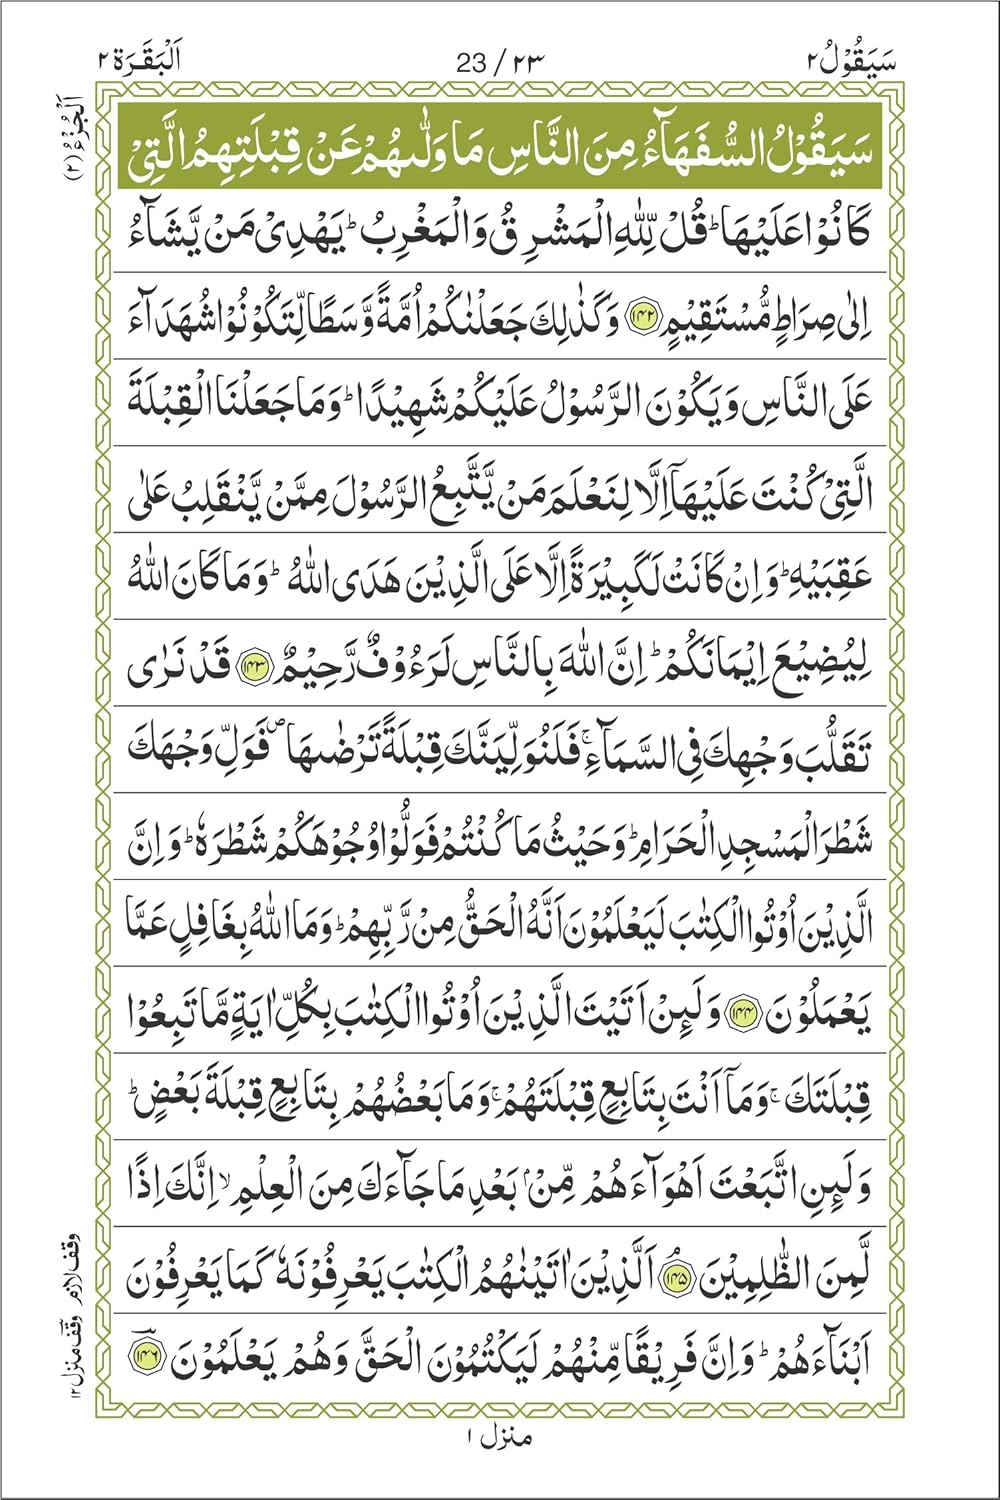 سَيَقُوْلُ ٢
23 / ٢٣
اَلْبَقَرَة ٢
اَلْجُزْءُ (٢)
سَيَقُوْلُ السُّفَهَآءُ مِنَ النَّاسِ مَا وَلّٰىهُمْ عَنْ قِبْلَتِهِمُ الَّتِىْ
كَانُوْا عَلَيْهَا ؕ قُلْ لِّلّٰهِ الْمَشْرِقُ وَالْمَغْرِبُ ؕ يَهْدِىْ مَنْ يَّشَآءُ
اِلٰى صِرَاطٍ مُّسْتَقِيْمٍ ﴿١٤٢﴾ وَكَذٰلِكَ جَعَلْنٰكُمْ اُمَّةً وَّسَطًا لِّتَكُوْنُوْا شُهَدَآءَ
عَلَى النَّاسِ وَيَكُوْنَ الرَّسُوْلُ عَلَيْكُمْ شَهِيْدًا ؕ وَمَا جَعَلْنَا الْقِبْلَةَ
الَّتِىْ كُنْتَ عَلَيْهَآ اِلَّا لِنَعْلَمَ مَنْ يَّتَّبِعُ الرَّسُوْلَ مِمَّنْ يَّنْقَلِبُ عَلٰى
عَقِبَيْهِ ؕ وَاِنْ كَانَتْ لَكَبِيْرَةً اِلَّا عَلَى الَّذِيْنَ هَدَى اللّٰهُ ؕ وَمَا كَانَ اللّٰهُ
لِيُضِيْعَ اِيْمَانَكُمْ ؕ اِنَّ اللّٰهَ بِالنَّاسِ لَرَءُوْفٌ رَّحِيْمٌ ﴿١٤٣﴾ قَدْ نَرٰى
تَقَلُّبَ وَجْهِكَ فِى السَّمَآءِ ۚ فَلَنُوَلِّيَنَّكَ قِبْلَةً تَرْضٰىهَا ۖ فَوَلِّ وَجْهَكَ
شَطْرَ الْمَسْجِدِ الْحَرَامِ ؕ وَحَيْثُ مَا كُنْتُمْ فَوَلُّوْا وُجُوْهَكُمْ شَطْرَهٗ ؕ وَاِنَّ
الَّذِيْنَ اُوْتُوا الْكِتٰبَ لَيَعْلَمُوْنَ اَنَّهُ الْحَقُّ مِنْ رَّبِّهِمْ ؕ وَمَا اللّٰهُ بِغَافِلٍ عَمَّا
يَعْمَلُوْنَ ﴿١٤٤﴾ وَلَئِنْ اَتَيْتَ الَّذِيْنَ اُوْتُوا الْكِتٰبَ بِكُلِّ اٰيَةٍ مَّا تَبِعُوْا
قِبْلَتَكَ ۚ وَمَآ اَنْتَ بِتَابِعٍ قِبْلَتَهُمْ ۚ وَمَا بَعْضُهُمْ بِتَابِعٍ قِبْلَةَ بَعْضٍ ؕ
وَلَئِنِ اتَّبَعْتَ اَهْوَآءَهُمْ مِّنْۢ بَعْدِ مَا جَآءَكَ مِنَ الْعِلْمِ ۙ اِنَّكَ اِذًا
لَّمِنَ الظّٰلِمِيْنَ ﴿١٤٥﴾ۘ اَلَّذِيْنَ اٰتَيْنٰهُمُ الْكِتٰبَ يَعْرِفُوْنَهٗ كَمَا يَعْرِفُوْنَ
اَبْنَآءَهُمْ ؕ وَاِنَّ فَرِيْقًا مِّنْهُمْ لَيَكْتُمُوْنَ الْحَقَّ وَهُمْ يَعْلَمُوْنَ ﴿١٤٦﴾
وقف لازم وقف منزل ١٢
منزل ١